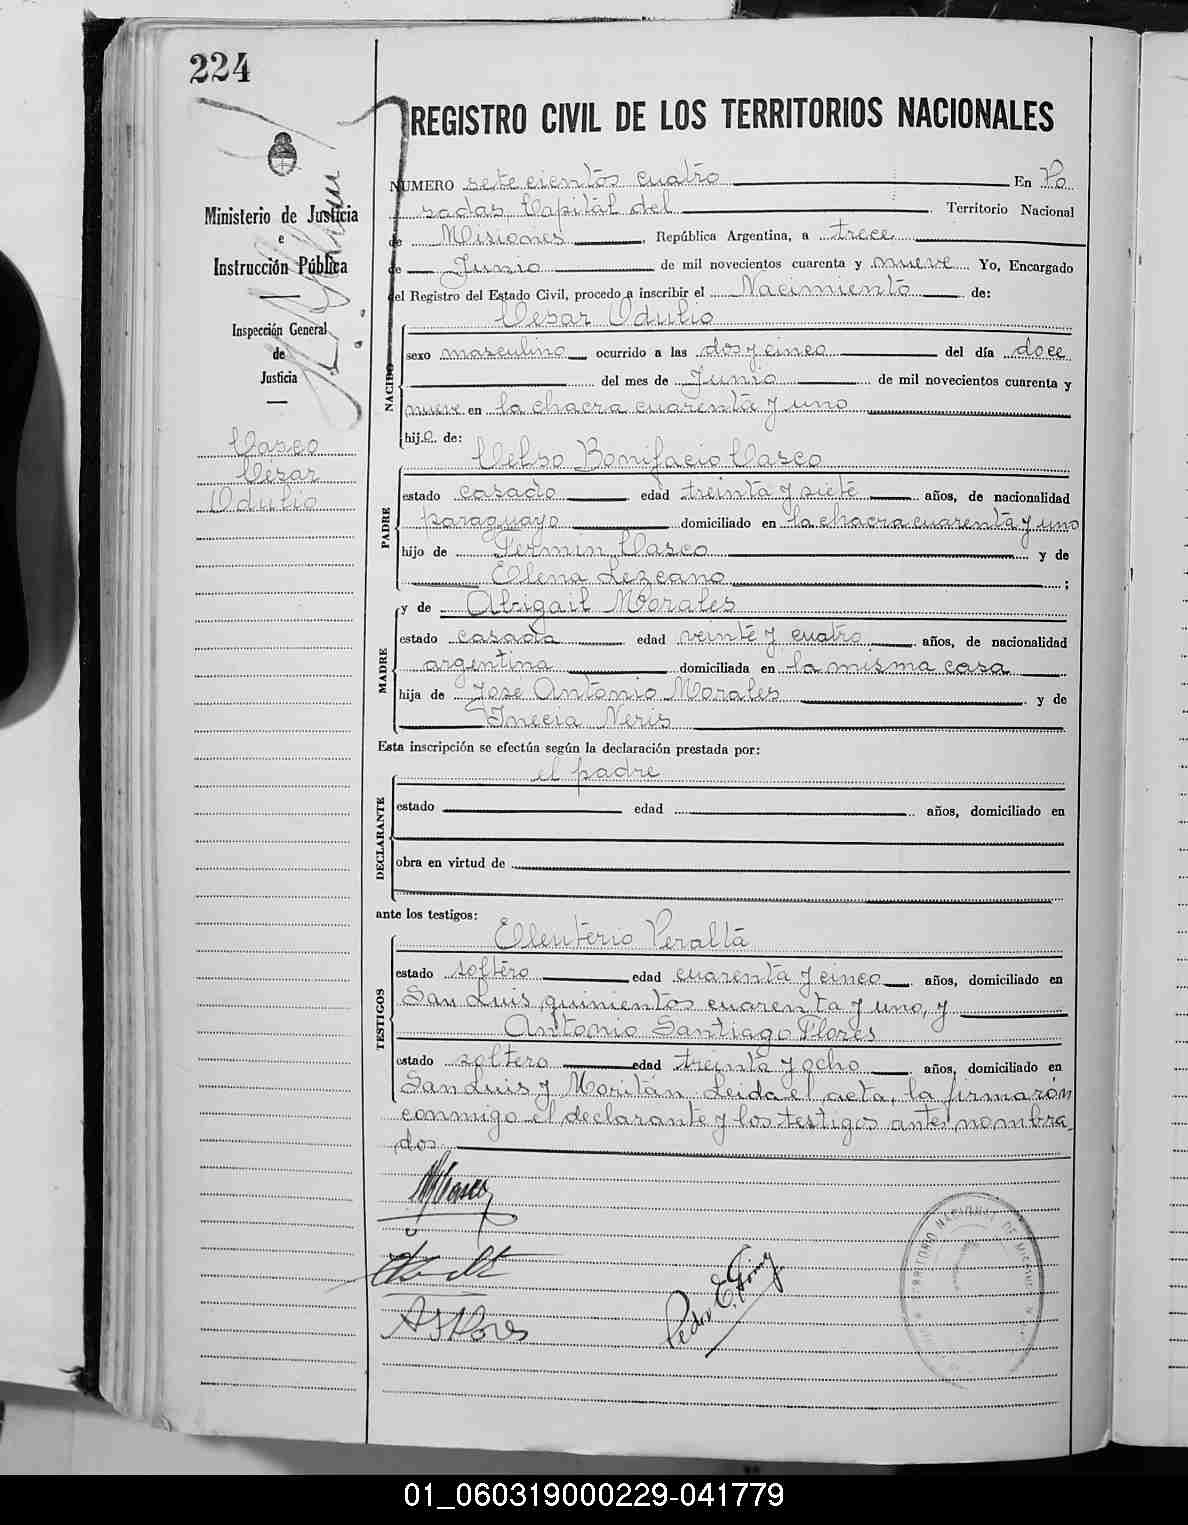 224
REGISTRO CIVIL DE LOS TERRITORIOS NACIONALES
Ministerio de Justicia
e
Instrucción Pública
Inspección General
de
Justicia
Vasco
César
Odulio
NUMERO setecientos cuatro En Po
sadas Capital del Territorio Nacional
de Misiones, República Argentina, a trece
de Junio de mil novecientos cuarenta y nueve Yo, Encargado
del Registro del Estado Civil, procedo a inscribir el Nacimiento de:
NACIDO
Cesar Odulio
sexo masculino ocurrido a las dos y cinco del día doce
del mes de Junio de mil novecientos cuarenta y
nueve en la chacra cuarenta y uno
hijo de:
PADRE
Celso Bonifacio Vasco
estado casado edad treinta y siete años, de nacionalidad
paraguayo domiciliado en la chacra cuarenta y uno
hijo de Fermin Vasco y de
Elena Lezcano ;
MADRE
y de Abigail Morales
estado casada edad veinte y cuatro años, de nacionalidad
argentina domiciliada en la misma casa
hija de Jose Antonio Morales y de
Ynecia Neris
Esta inscripción se efectúa según la declaración prestada por:
DECLARANTE
el padre
estado edad años, domiciliado en
obra en virtud de
ante los testigos:
TESTIGOS
Eleuterio Peralta
estado soltero edad cuarenta y cinco años, domiciliado en
San Luis quinientos cuarenta y uno, y
Antonio Santiago Flores
estado soltero edad treinta y ocho años, domiciliado en
San Luis y Moritán Leida el acta, la firmarón
conmigo el declarante y los testigos antes nombra
dos
Vasco
A S Flores
Pedro E. Gómez
TERRITORIO NACIONAL DE MISIONES
01_060319000229-041779